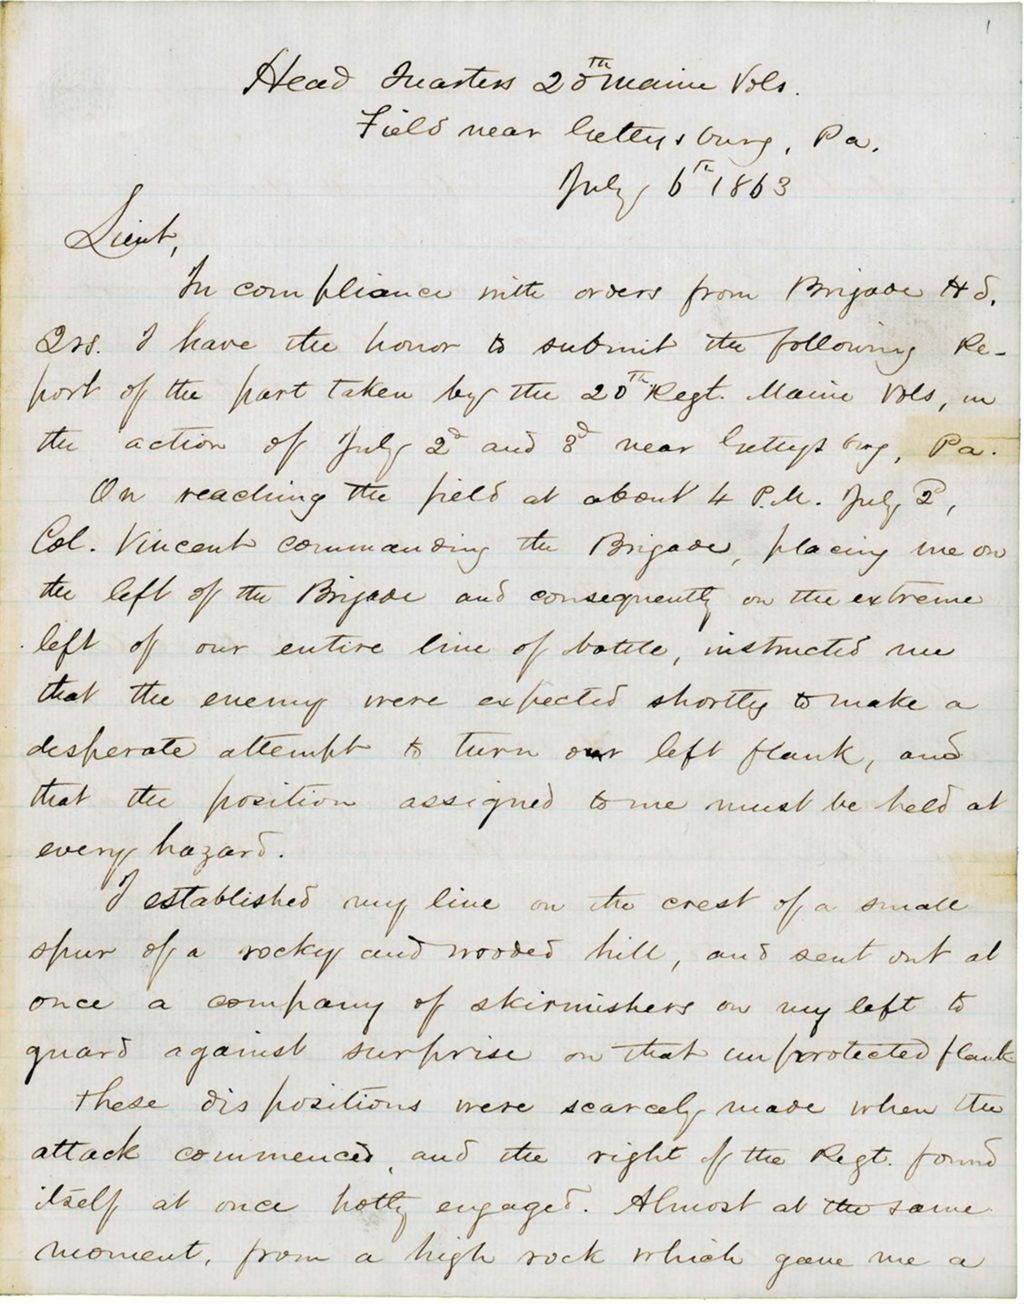 1
Head Quarters 20th Maine Vols.
Field near Gettysburg, Pa.
July 6th 1863
Lieut,
In compliance with orders from Brigade Hd.
Qrs. I have the honor to submit the following Re-
port of the part taken by the 20th Regt. Maine Vols, in
the action of July 2d and 3d near Gettysburg, Pa.
On reaching the field at about 4 P.M. July 2d,
Col. Vincent commanding the Brigade, placing me on
the left of the Brigade and consequently on the extreme
left of our entire line of battle, instructed me
that the enemy were expected shortly to make a
desperate attempt to turn our left flank, and
that the position assigned to me must be held at
every hazard.
I established my line on the crest of a small
spur of a rocky and wooded hill, and sent out at
once a company of skirmishers on my left to
guard against surprise on that unprotected flank
These dispositions were scarcely made when the
attack commenced, and the right of the Regt. found
itself at once hotly engaged. Almost at the same
moment, from a high rock which gave me a